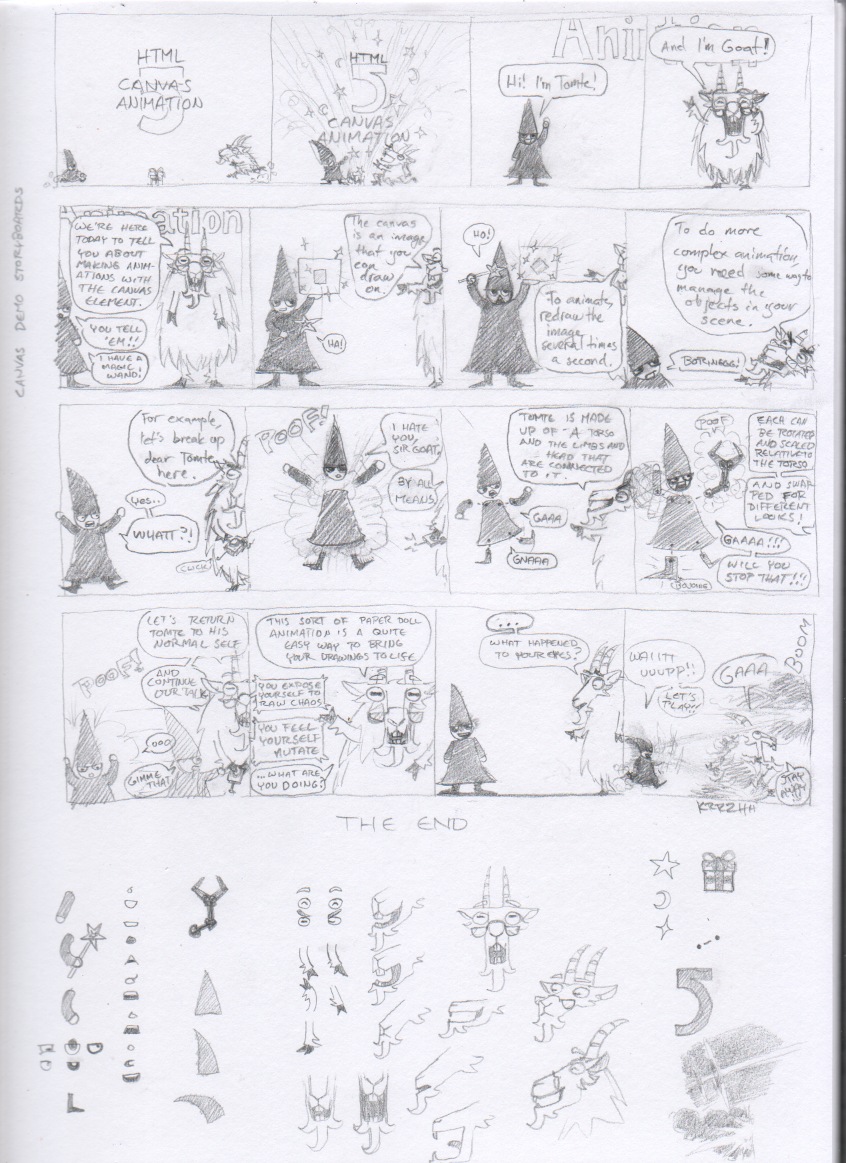 CANVAS DEMO STORYBOARDS
HTML
5
CANVAS
ANIMATION
HTML
5
CANVAS
ANIMATION
Ani
Hi! I'm Tomte!
And I'm Goat!
Animation
WE'RE HERE
TODAY TO TELL
YOU ABOUT
MAKING ANIM-
ATIONS WITH
THE CANVAS
ELEMENT.
YOU TELL
'EM!!
I HAVE A
MAGIC
WAND.
The canvas
is an image
that you
can
draw
on.
HA!
HO!
To animate,
redraw the
image
several times
a second.
To do more
complex animation,
you need some way to
manage the
objects in your
scene.
BORINGGG!
For example,
let's break up
dear Tomte
here.
Yes..
WHATT?!
CLICK
POOF!
I HATE
YOU,
SIR GOAT.
BY ALL
MEANS
TOMTE IS MADE
UP OF A TORSO
AND THE LIMBS AND
HEAD THAT
ARE CONNECTED
TO IT.
GAAA
GNAAA
POOF
EACH CAN
BE ROTATED
AND SCALED
RELATIVE TO
THE TORSO
AND SWAP
PED FOR
DIFFERENT
LOOKS!
GAAAA!!!
WILL YOU
STOP THAT!!!
LET'S RETURN
TOMTE TO HIS
NORMAL SELF
POOF!
AND
CONTINUE
OUR TALK
OOO
GIMME
THAT
THIS SORT OF PAPER DOLL
ANIMATION IS A QUITE
EASY WAY TO BRING
YOUR DRAWINGS TO LIFE
YOU EXPOSE
YOURSELF TO
RAW CHAOS
YOU FEEL
YOURSELF
MUTATE
...WHAT ARE
YOU DOING?
...
WHAT HAPPENED
TO YOUR EYES?
WAIITT
UUUPP!!
LET'S
PLAY!!
GAAA
BOOM
STAY
AWAY
!!
KRRZHH
THE END
5